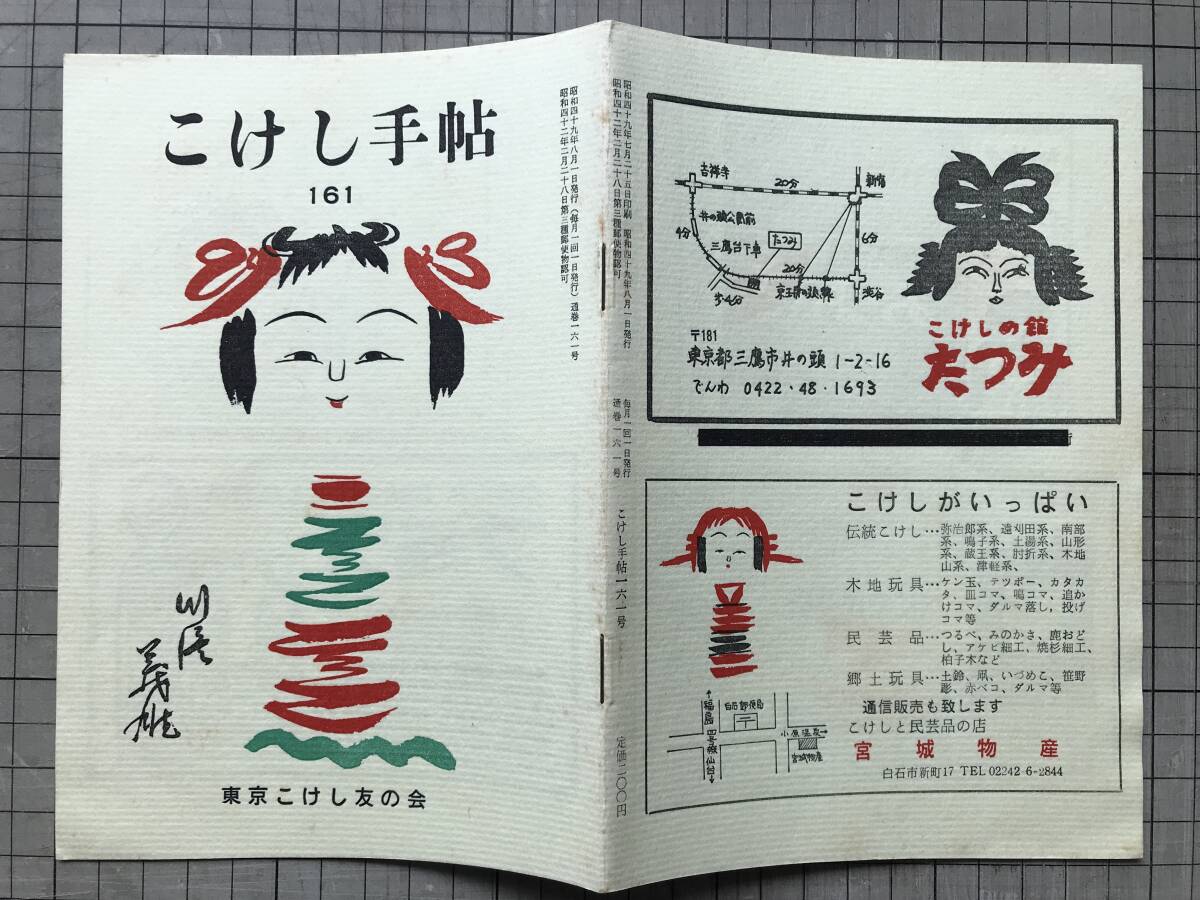 こけし手帖
161
東京こけし友の会
昭和四十九年八月一日発行(毎月一回一日発行)通巻一六一号
昭和四十二年二月二十八日第三種郵便物認可
昭和四十九年七月二十五日印刷 昭和四十九年八月一日発行
昭和四十二年二月二十八日第三種郵便物認可
毎月一回一日発行
通巻一六一号
こけし手帖一六一号
定価二〇〇円
吉祥寺
20分
新宿
井の頭公園前
4分
三鷹台下車
たつみ
6分
20分
京王井の頭線
渋谷
歩4分
〒181
東京都三鷹市井の頭 1-2-16
でんわ 0422・48・1693
こけしの館
たつみ
こけしがいっぱい
伝統こけし…弥治郎系、遠刈田系、南部
系、鳴子系、土湯系、山形
系、蔵王系、肘折系、木地
山系、津軽系、
木地玩具…ケン玉、テツポー、カタカ
タ、皿コマ、鳴コマ、追か
けコマ、ダルマ落し、投げ
コマ等
民芸品…つるべ、みのかさ、鹿おど
し、アケビ細工、焼杉細工、
柏子木など
郷土玩具…土鈴、凧、いづめこ、笹野
彫、赤ベコ、ダルマ等
通信販売も致します
こけしと民芸品の店
宮城物産
白石市新町17 TEL 02242-6-2844
福島
四号線
仙台
白石郵便局
〒
小原温泉
宮城物産